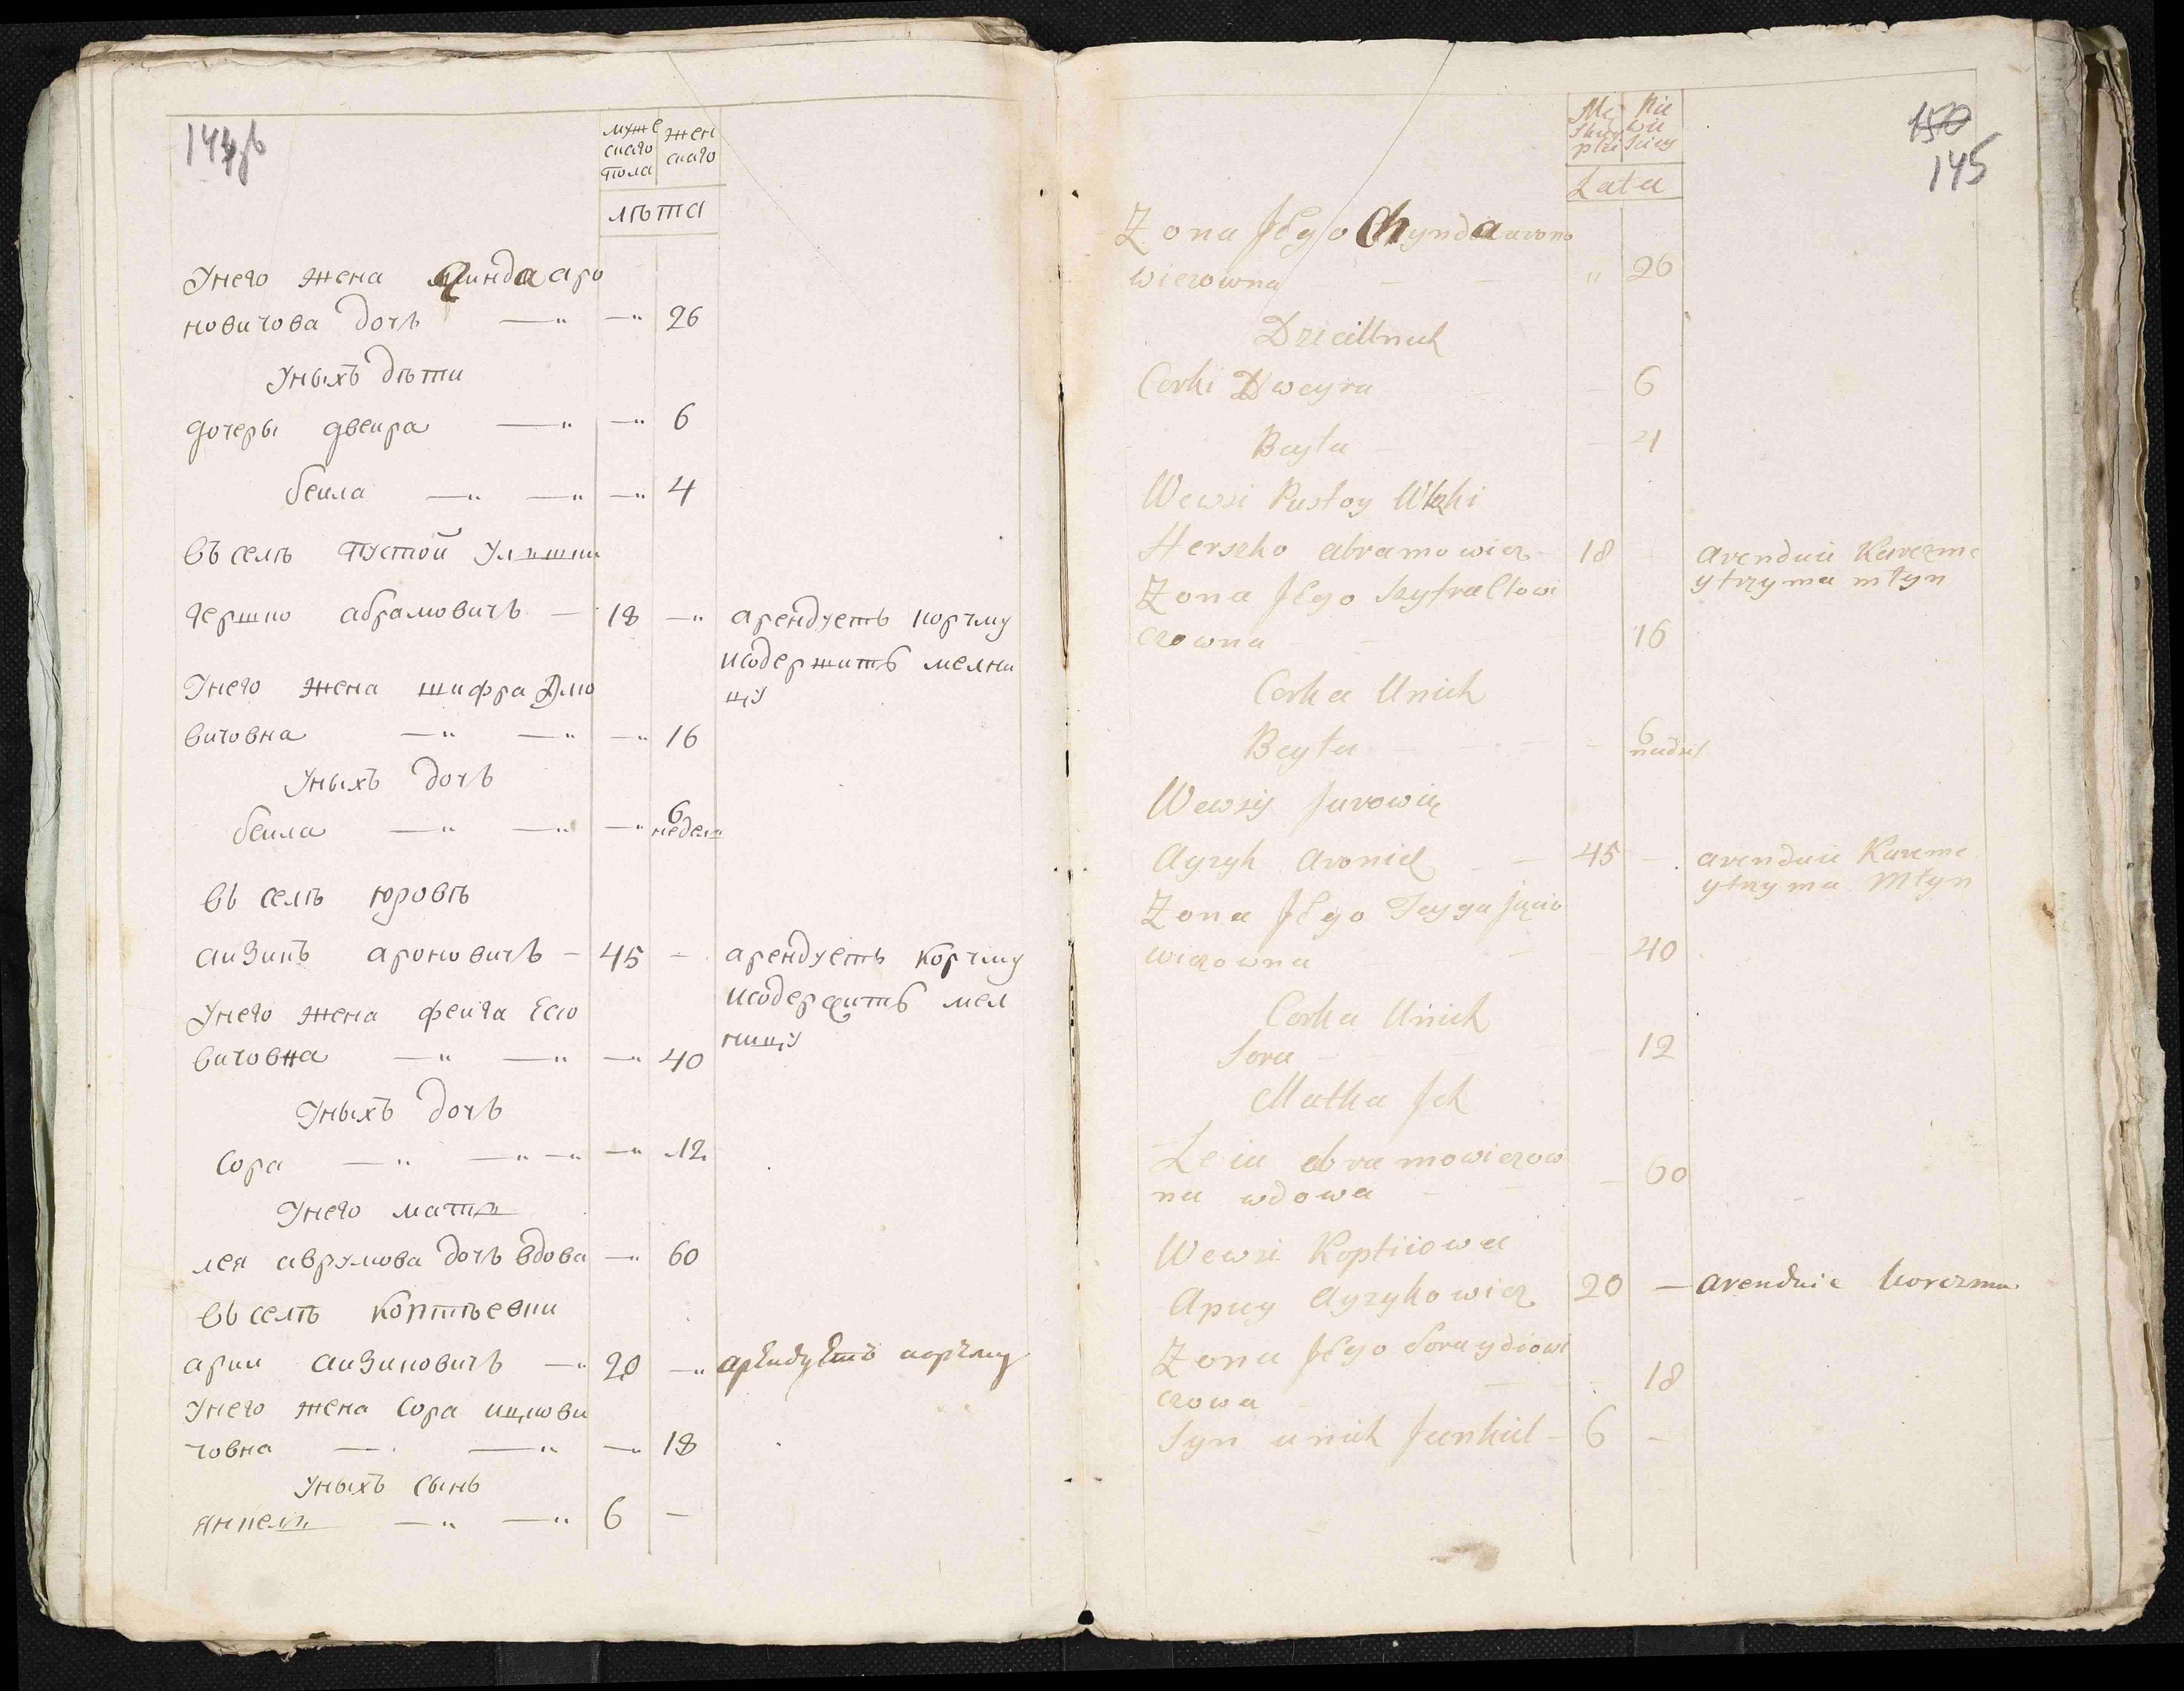 муже жен
скаго скаго
пола
лѣта
Унего жена хинда аро
новичова дочь 26
Уныхъ дѣти
дочеры двеира 6
беила 4
въ селѣ пустой
гершко абрамовичъ 18 арендуетъ корчму
исодержитъ мелни
цу
Унего жена шифра
вичовна 16
Уныхъ дочь
беила 6
недел
въ селѣ юровѣ
аизикъ ароновичъ 45 арендуетъ корчму
исодержитъ мел
ницу
Унего жена феига
вичовна 40
Уныхъ дочь
Сора 12
Унего мать
лея аврумова дочь вдова 60
въ селѣ коптѣевки
арии аизиковичъ 20 арендуетъ корчму
Унего жена Сора ицкови
човна 18
Уныхъ сынъ
янкель 6
150
145
Lata
Zona Jego Chynda arono
wiczowna 26
Dzieci unich
Corki Dweyra 6
Beyła 4
Wewsi Pustoy
Herszko abramowicz 18 arenduie Karczme
ytrzyma młyn
Zona Jego
czowna 16
Corka Unich
Beyła 6
Wewsij Jurowie
Ayzyk 45 arenduie Karcme
ytrzyma Młyn
Zona Jego Feyga
wiczowna 40
Corka Unich
Sora 12
Matka Jch
Leia abramowiczow
na wdowa 60
Wewsi Koptiiowce
Ayzykowicz 20 arenduie korczma
Zona Jego Sora
czowa 18
Syn unich Jankiel 6